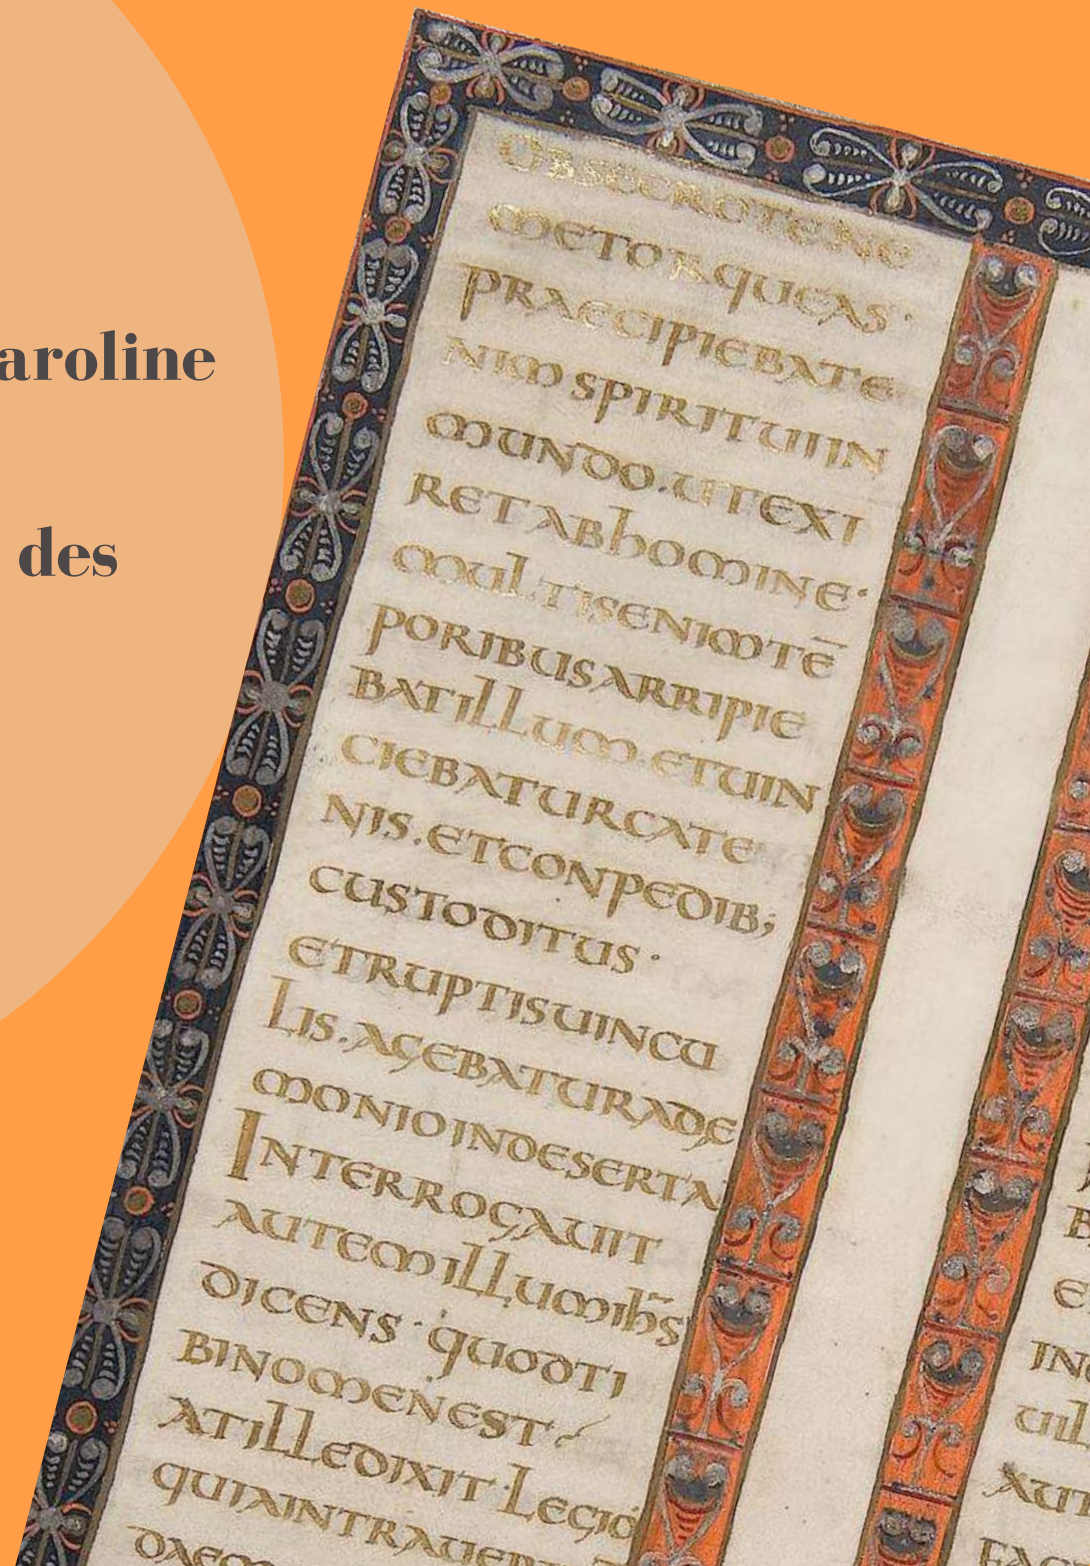 aroline
des
OBSECROTENE
METORQUEAS·
PRAECIPIEBATE
NIMSPIRITUIIN
MUNDO.UTEXI
RETABhOMINE·
MULTISENIMTE̅
PORIBUSARRIPIE
BATILLUM.ETUIN
CIEBATURCATE
NIS.ETCONPEDIB;
CUSTODITUS·
ETRUPTISUINCU
LIS.AGEBATURADE
MONIOINDESERTA
INTERROGAUIT
AUTEMILLUMIh̅S
DICENS·QUODTI
BINOMENEST
ATILLEDIXIT·LEGIO
QUIAINTRAUER
DAEM
E
IN
AUT